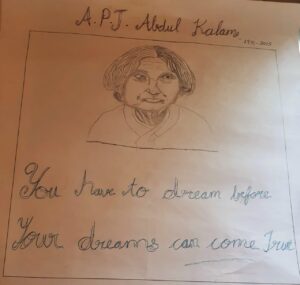 A.P.J. Abdul Kalam
1931-2015
You have to dream before
Your dreams can come True